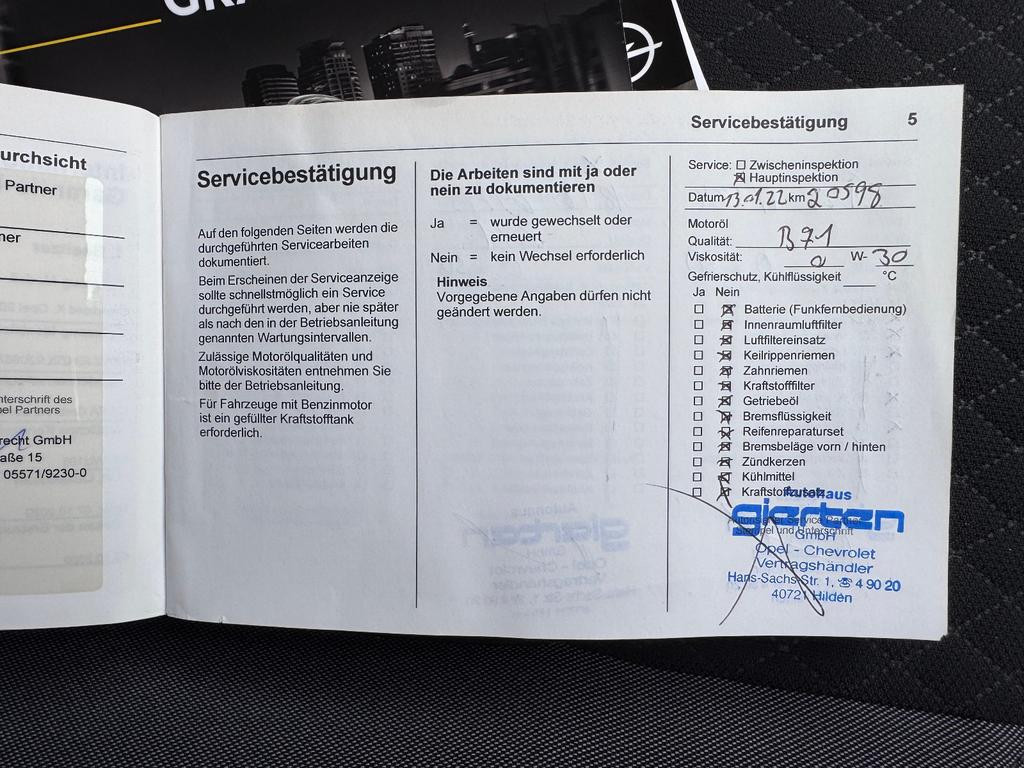 GRA
urchsicht
Partner
ner
nterschrift des
pel Partners
recht GmbH
aße 15
05571/9230-0
Servicebestätigung 5
Servicebestätigung
Auf den folgenden Seiten werden die
durchgeführten Servicearbeiten
dokumentiert.
Beim Erscheinen der Serviceanzeige
sollte schnellstmöglich ein Service
durchgeführt werden, aber nie später
als nach den in der Betriebsanleitung
genannten Wartungsintervallen.
Zulässige Motorölqualitäten und
Motorölviskositäten entnehmen Sie
bitte der Betriebsanleitung.
Für Fahrzeuge mit Benzinmotor
ist ein gefüllter Kraftstofftank
erforderlich.
Die Arbeiten sind mit ja oder
nein zu dokumentieren
Ja = wurde gewechselt oder
erneuert
Nein = kein Wechsel erforderlich
Hinweis
Vorgegebene Angaben dürfen nicht
geändert werden.
Service: Zwischeninspektion
Hauptinspektion
Datum 13.01.22 km 20598
Motoröl
Qualität: B71
Viskosität: 0 W- 30
Gefrierschutz, Kühlflüssigkeit °C
Ja Nein
Batterie (Funkfernbedienung)
Innenraumluftfilter
Luftfiltereinsatz
Keilrippenriemen
Zahnriemen
Kraftstofffilter
Getriebeöl
Bremsflüssigkeit
Reifenreparaturset
Bremsbeläge vorn / hinten
Zündkerzen
Kühlmittel
Kraftstoffzusatz
Autohaus
gierten
Autorisierter Service Partner
Stempel und Unterschrift
GmbH
Opel - Chevrolet
Vertragshändler
Hans-Sachs-Str. 1, ☎ 4 90 20
40721 Hilden